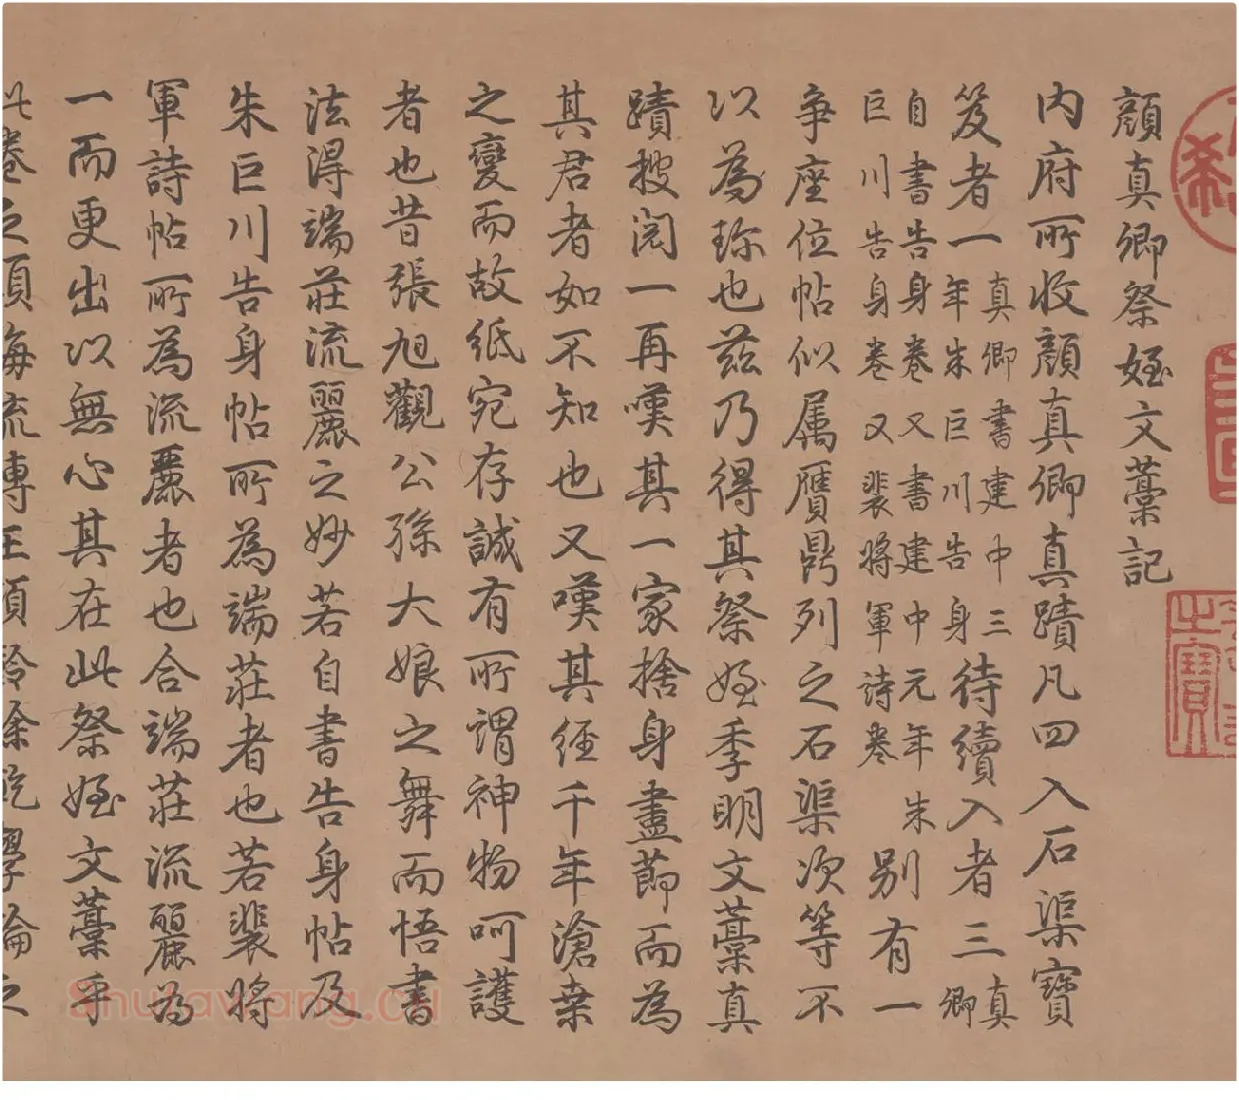 顏真卿祭姪文藁記
內府所收顏真卿真蹟凡四入石渠寶
笈者一真卿書建中三年朱巨川告身待續入者三真卿
自書告身卷又書建中元年朱巨川告身卷又裴將軍詩卷別有一
爭座位帖似属贋鼎列之石渠次等不
以為珎也茲乃得其祭姪季明文藁真
蹟披閱一再嘆其一家捨身盡節而為
其君者如不知也又嘆其經千年滄桒
之變而故紙宛存誠有所謂神物呵護
者也昔張旭觀公孫大娘之舞而悟書
法得端莊流麗之妙若自書告身帖及
朱巨川告身帖所為端莊者也若裴將
軍詩帖所為流麗者也合端莊流麗為
一而更出以無心其在此祭姪文藁乎
此卷之
之寶
shufawang.cn